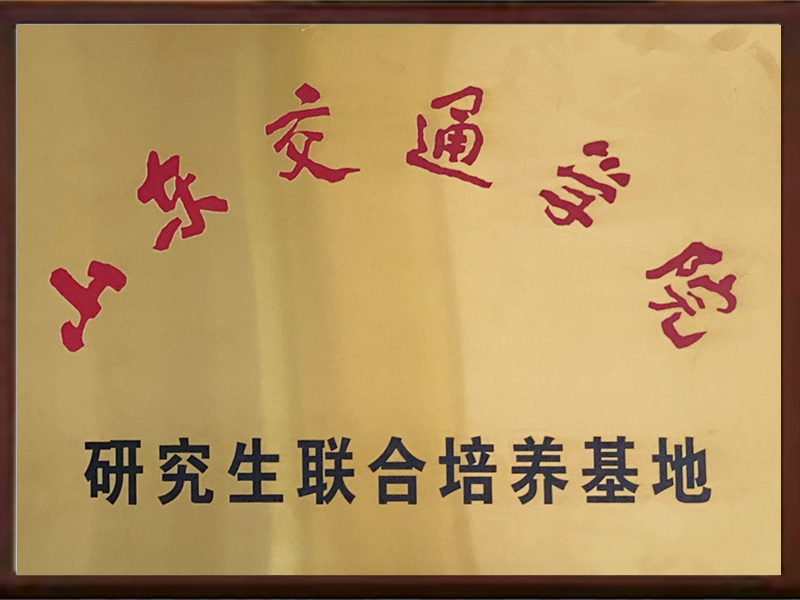 山东交通学院
研究生联合培养基地